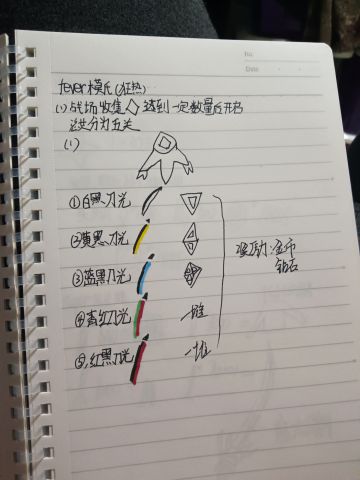 No.
Date
fever模式(狂热)
(1)战场收集◇达到一定数量后开启
这分为五关
(1)
①白黑刀光
②黄黑刀光
③蓝黑刀光
④青红刀光 一堆
⑤红黑刀光 一堆
奖励:金币
钻石